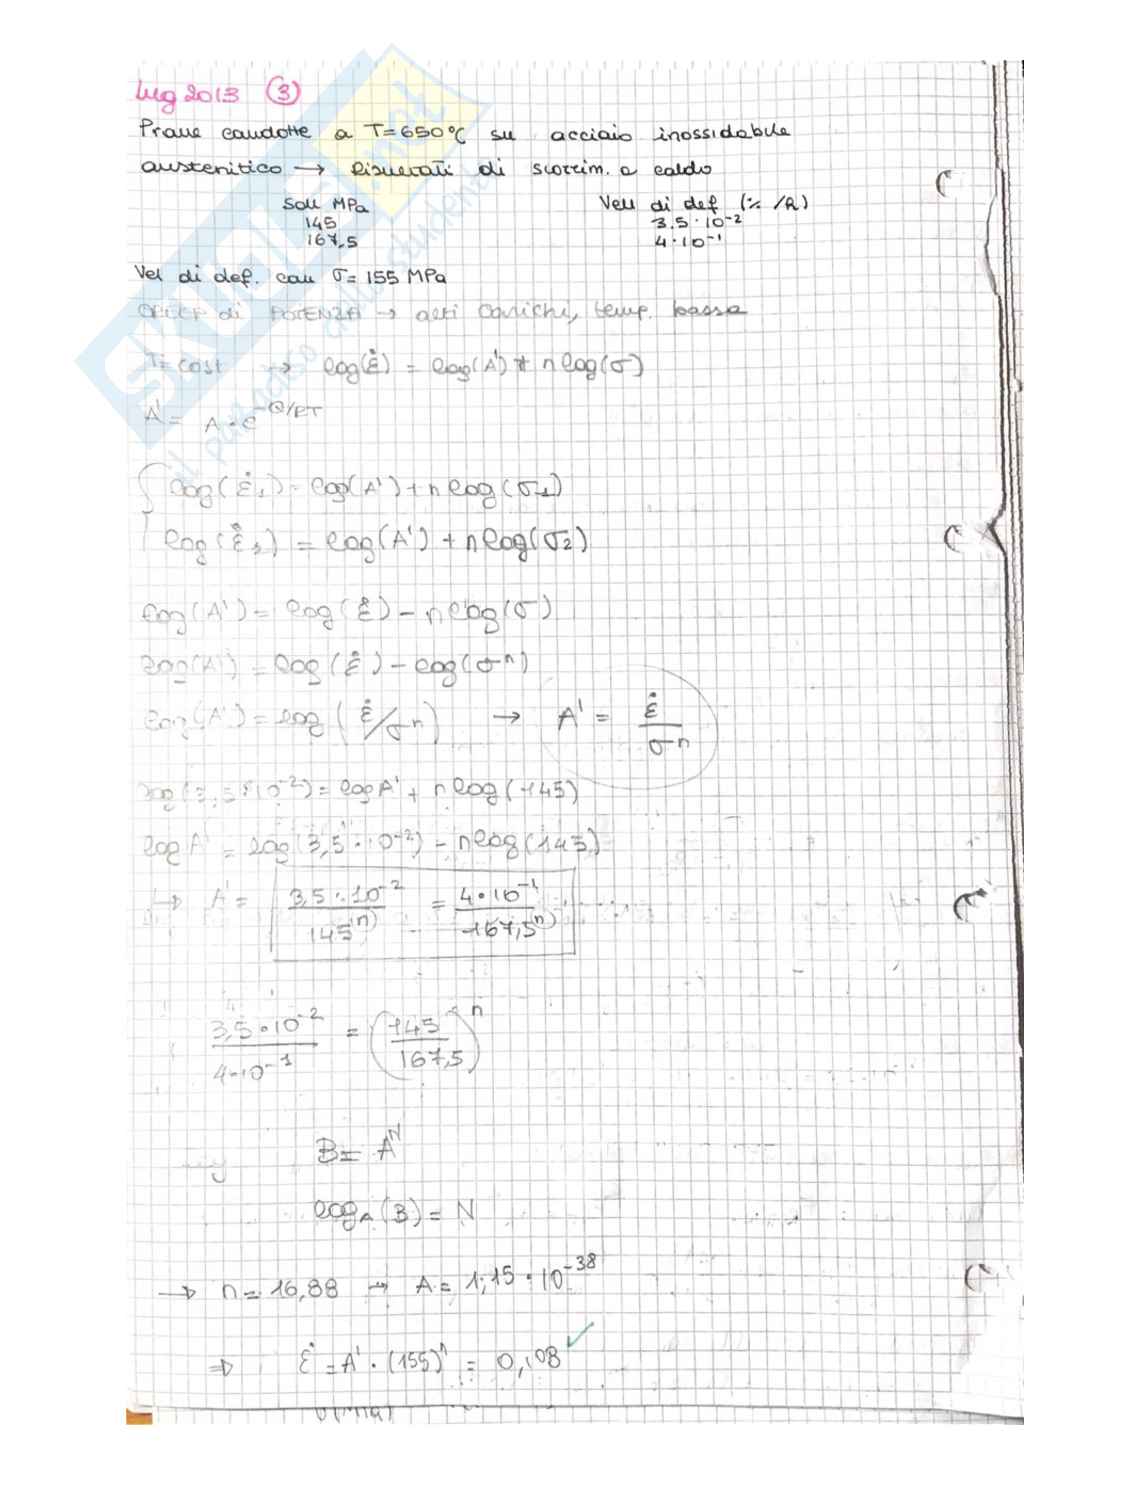 lug 2013 (3)
Prove condotte a T=650°C su acciaio inossidabile
austenitico → Risultati di scorrim. a caldo
Soll MPa Vel di def (% /h)
145 3,5·10⁻²
167,5 4·10⁻¹
Vel di def. con σ=155 MPa
di POTENZA → alti carichi, temp. bassa
T=cost → log(ε̇) = log(A') + n log(σ)
A' = A·e^(-Q/RT)
log(ε̇₁) = log(A') + n log(σ₁)
log(ε̇₂) = log(A') + n log(σ₂)
log(A') = log(ε̇) - n log(σ)
log(A') = log(ε̇) - log(σⁿ)
log(A') = log(ε̇/σⁿ) → A' = ε̇/σⁿ
log(3,5·10⁻²) = log A' + n log(145)
log A' = log(3,5·10⁻²) - n log(145)
↳ A' = 3,5·10⁻²/145ⁿ⁾ = 4·10⁻¹/167,5ⁿ⁾
3,5·10⁻²/4·10⁻¹ = (145/167,5)ⁿ
B = Aᴺ
log_A(B) = N
→ n = 16,88 → A = 1,15·10⁻³⁸
⇒ ε̇ = A'·(155)ⁿ = 0,108 ✓
SKUOLA.net
il paradiso dello studente